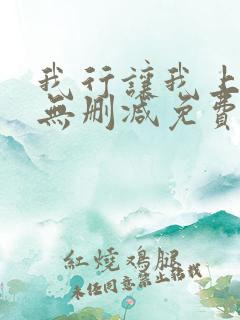 我行讓我上
無刪減免費
紅燒鸡腿
未经同意禁止转载